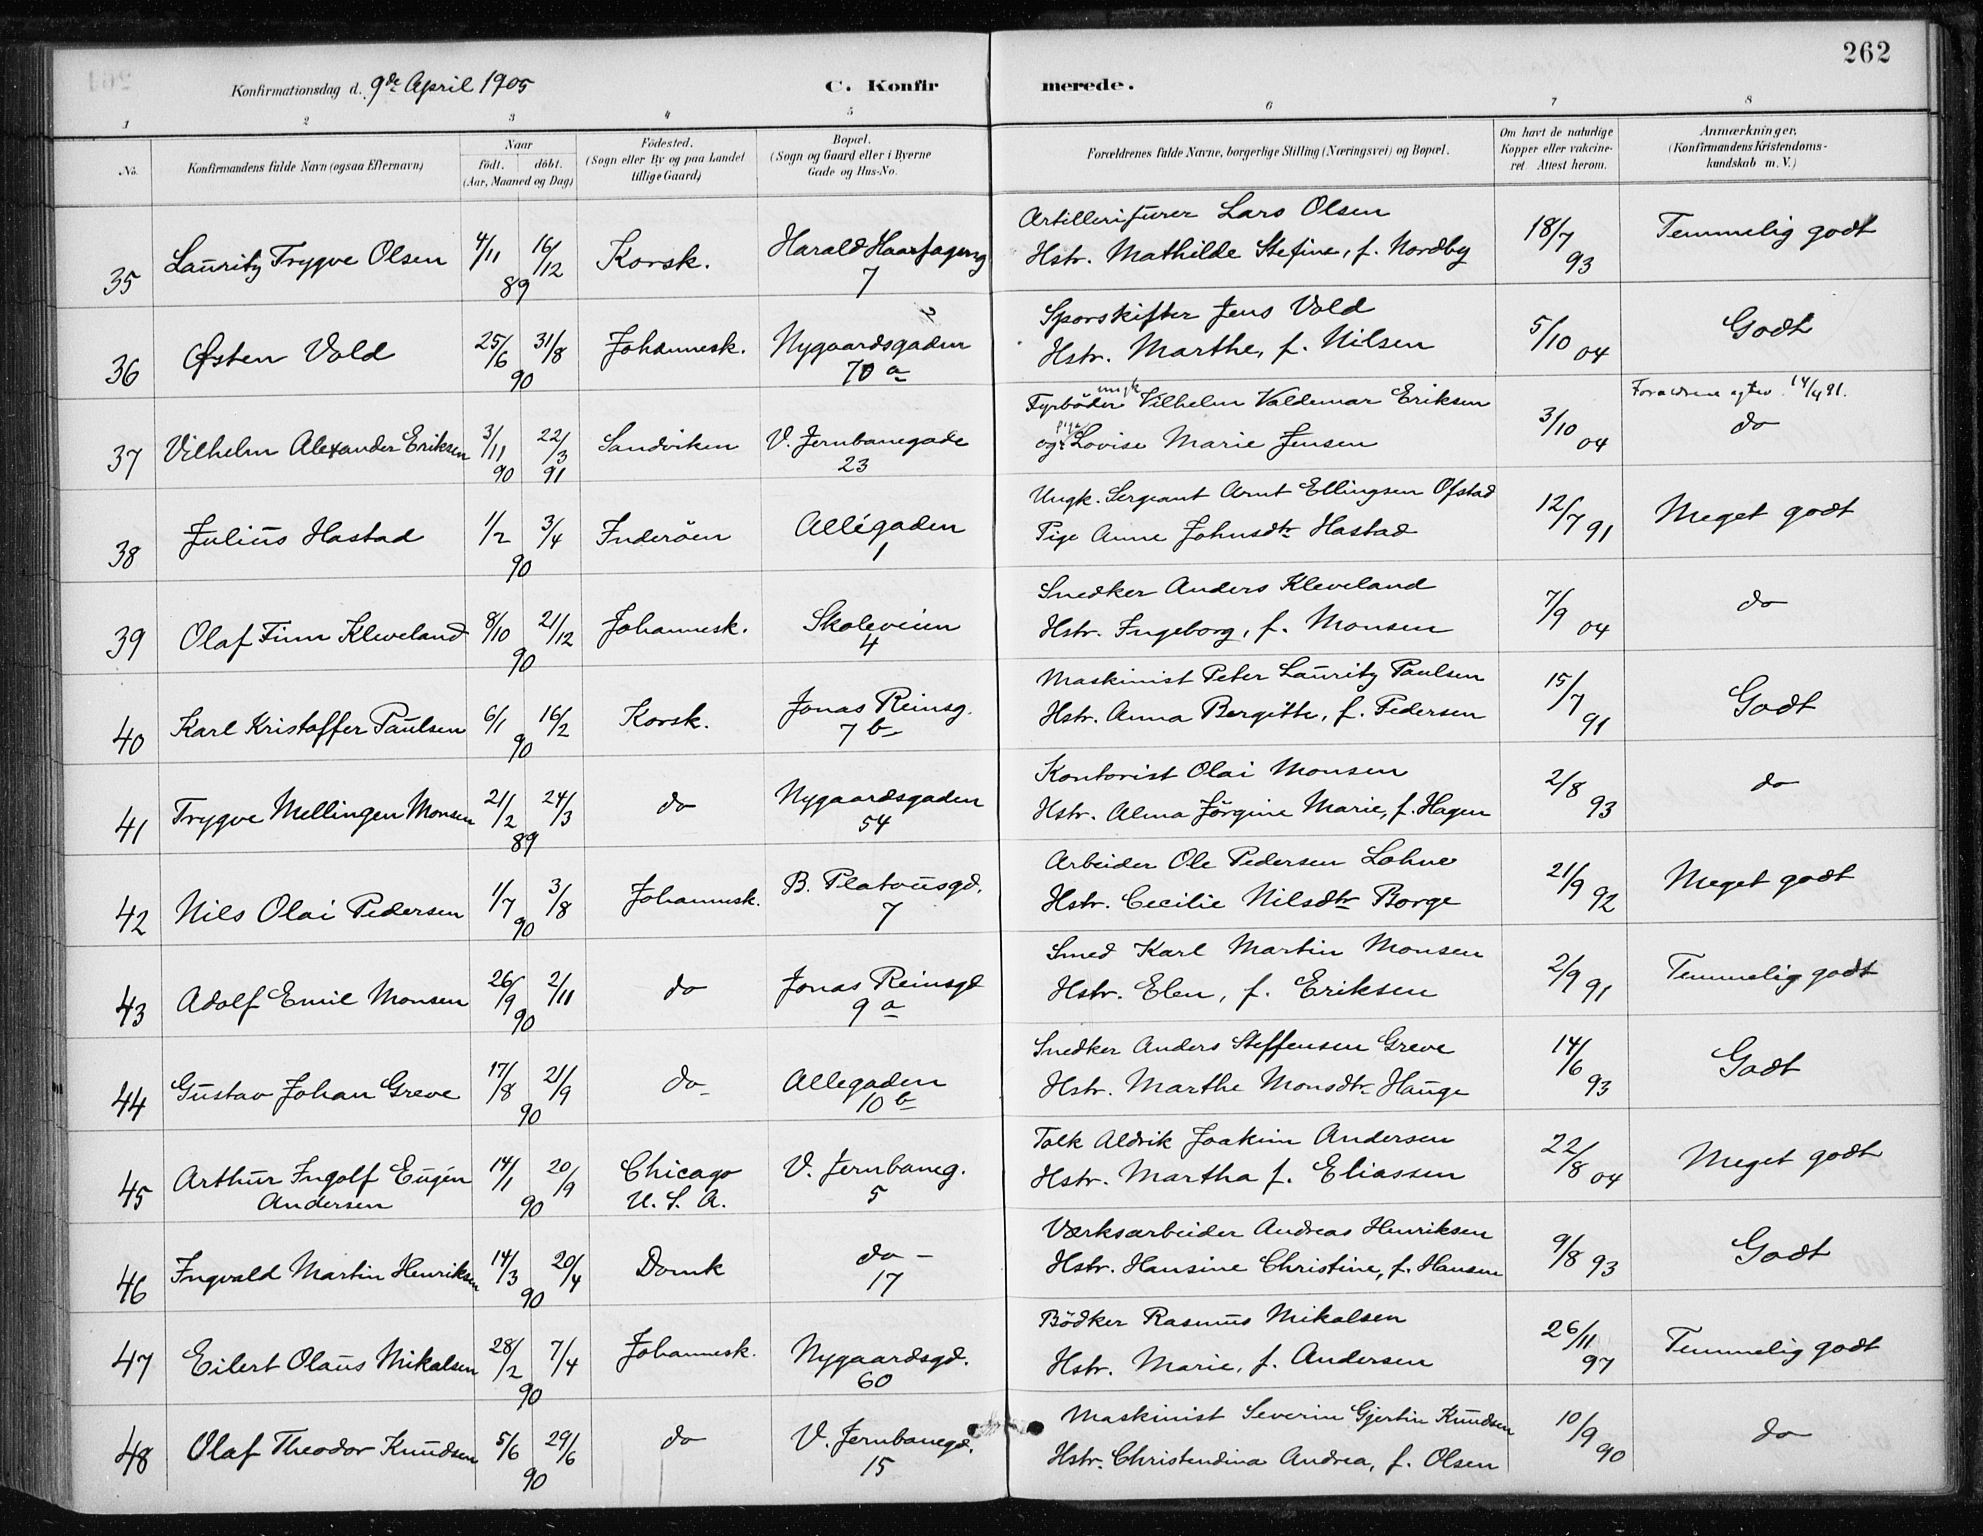 262
Konfirmationsdag d. 9de April 1905
C. Konfirmerede.
1 2 3 4 5 6 7 8
No.
Konfirmandens fulde Navn (ogsaa Efternavn)
Naar
födt. döbt.
(Aar, Maaned og Dag)
Födested.
(Sogn eller By og paa Landet
tillige Gaard)
Bopæl.
(Sogn og Gaard eller i Byerne
Gade og Hus-No.
Forældrenes fulde Navne, borgerlige Stilling (Næringsvei) og Bopæl.
Om havt de naturlige
Kopper eller vakcine-
ret Attest herom.
Anmærkninger,
(Konfirmandens Kristendoms-
kundskab m. V.)
35 Lauritz Trygve Olsen 4/11 16/12 89 Korsk. Harald Haarfagersg 7
Artillerifurer Lars Olsen
Hstr. Mathilde Stefine, f. Nordby
18/7 93 Temmelig godt
36 Østen Vold 25/6 31/8 90 Johannesk. Nygaardsgaden 70 a
Sporskifter Jens Vold
Hstr. Marthe, f. Nilsen
5/10 04 Godt
37 Vilhelm Alexander Eriksen 3/11 90 22/3 91 Sandviken V. Jernbanegade 23
Fyrböder ungk Vilhelm Valdemar Eriksen
og pige Lovise Marie Jensen
3/10 04 Forældrene egtev. 14/4 91.
do
38 Julius Hastad 1/2 3/4 90 Inderöen Allégaden 1
Ungk. Sergeant Arnt Ellingsen Ofstad
Pige Anne Johnsdtr Hastad
12/7 91 Meget godt
39 Olaf Finn Kleveland 8/10 21/12 90 Johannesk. Skoleveien 4
Snedker Anders Kleveland
Hstr. Ingeborg, f. Monsen
7/9 04 do
40 Karl Kristoffer Paulsen 6/1 16/2 90 Korsk. Jonas Reinsg. 7 b
Maskinist Peter Lauritz Paulsen
Hstr. Anna Bergitte, f. Pedersen
15/7 91 Godt
41 Trygve Mellingen Monsen 21/2 24/3 89 do Nygaardsgaden 54
Kontorist Olai Monsen
Hstr. Alma Jörgine Marie, f. Hagen
2/8 93 do
42 Nils Olai Pedersen 1/7 3/8 90 Johannesk. B. Platousgd. 7
Arbeider Ole Pedersen Lohne
Hstr. Cecilie Nilsdtr Borge
21/9 92 Meget godt
43 Adolf Emil Monsen 26/9 2/11 90 do Jonas Reinsgd 9 a
Smed Karl Martin Monsen
Hstr. Elen, f. Eriksen
2/9 91 Temmelig godt
44 Gustav Johan Greve 17/8 21/9 90 do Allegaden 10 b
Snedker Anders Steffensen Greve
Hstr. Marthe Monsdtr Hauge
14/6 93 Godt
45 Arthur Ingolf Eugén
Andersen 14/1 20/9 90 Chicago
U. S. A. V. Jernbaneg. 5
Tolk Aldrik Joakim Andersen
Hstr. Martha f. Eliassen
22/8 04 Meget godt
46 Ingvald Martin Henriksen 14/3 20/4 90 Domk do - 17
Værksarbeider Andreas Henriksen
Hstr. Hansine Christine, f. Hansen
9/8 93 Godt
47 Eilert Olaus Mikalsen 28/2 7/4 90 Johannesk. Nygaardsgd. 60
Bödker Rasmus Mikalsen
Hstr. Marie, f. Andersen
26/11 97 Temmelig godt
48 Olaf Theodor Knudsen 5/6 29/6 90 do V. Jernbanegd. 15
Maskinist Severin Gjertin Knudsen
Hstr. Christendina Andrea, f. Olsen
10/9 90 do